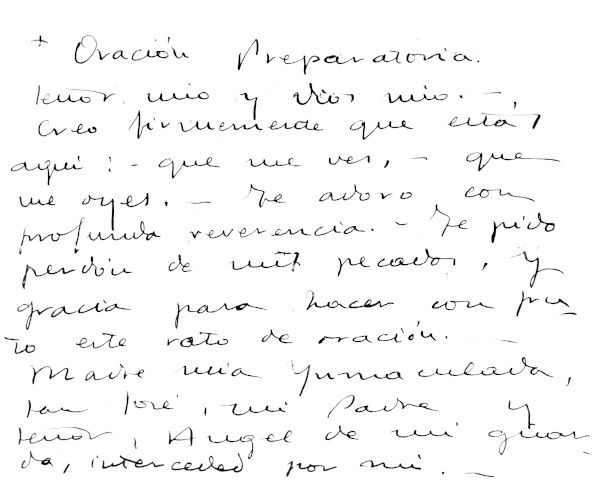 + Oración Preparatoria.
Señor mio y Dios mio. -
Creo firmemente que estás
aquí: - que me ves, - que
me oyes. - Te adoro con
profunda reverencia. - Te pido
perdón de mis pecados, y
gracia para hacer con fru-
to este rato de oración. -
Madre mía Ynmaculada,
San José, mi Padre y
Señor, Angel de mi guar-
da, interceded por mi. -